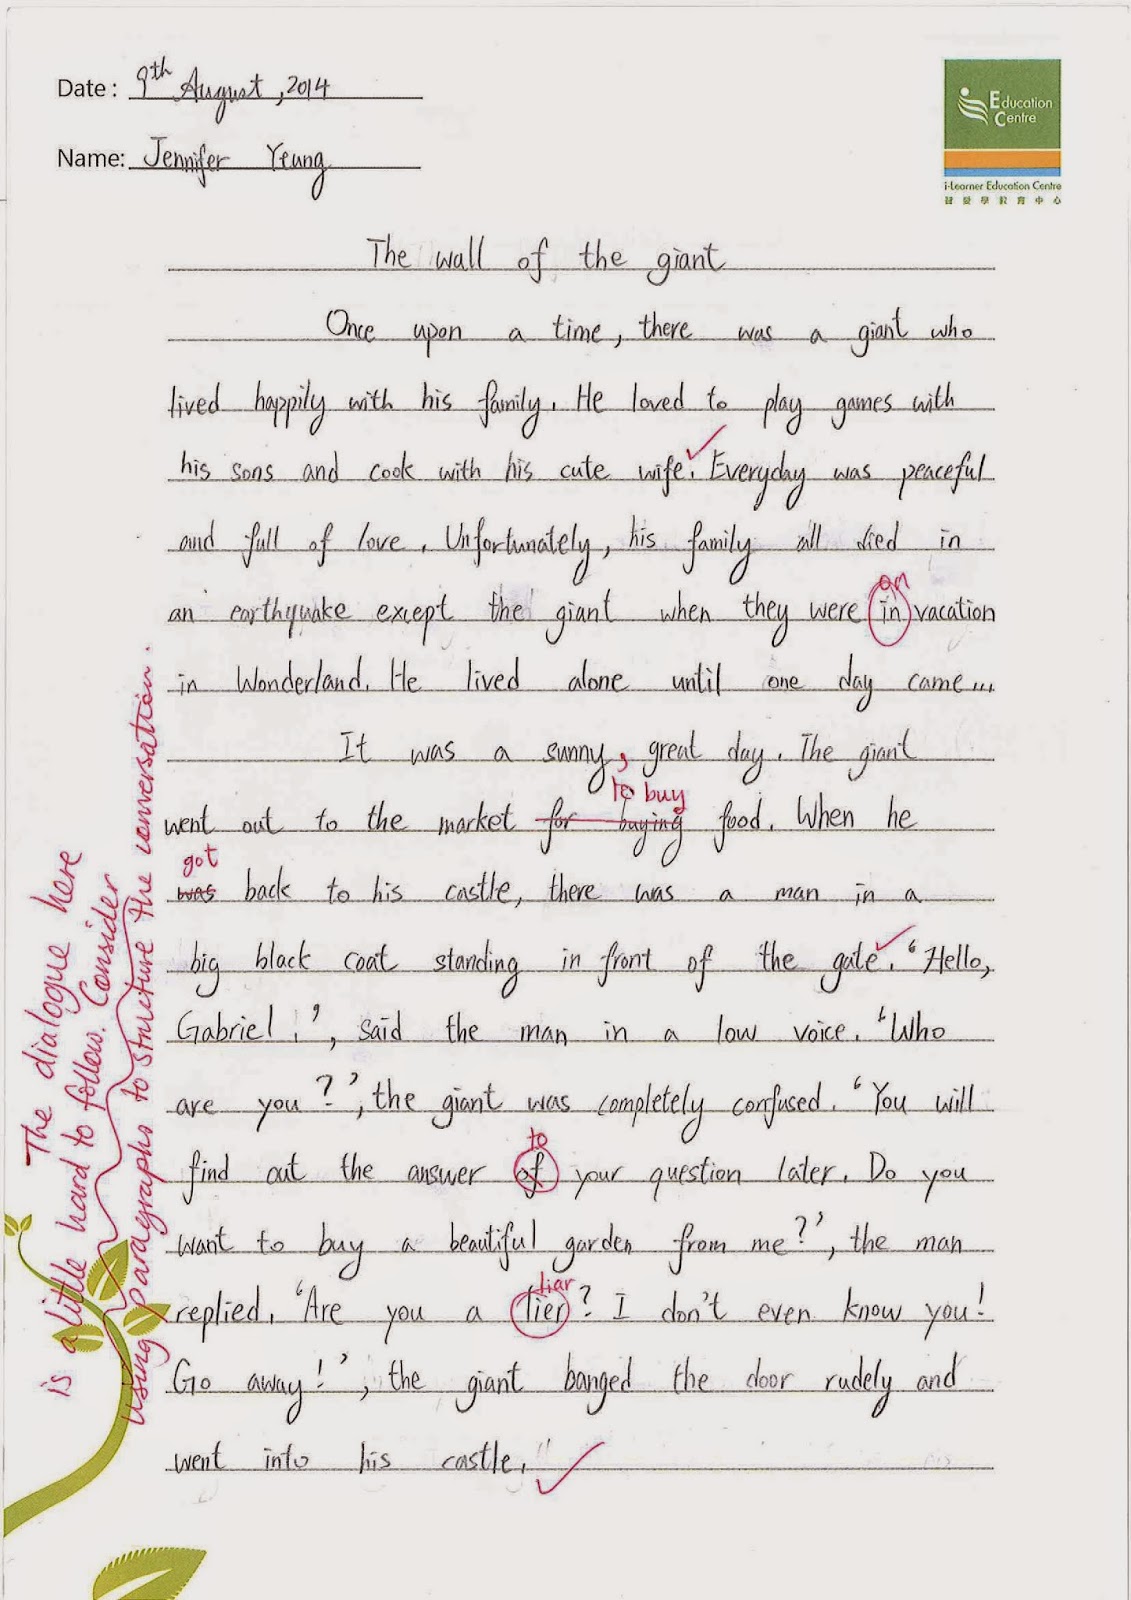 Date : 9th August, 2014
Education
Centre
i-Learner Education Centre
Name: Jennifer Yeung
The wall of the giant
Once upon a time, there was a giant who
lived happily with his family. He loved to play games with
his sons and cook with his cute wife. Everyday was peaceful
and full of love. Unfortunately, his family all died in
on
an earthquake except the giant when they were in vacation
in Wonderland. He lived alone until one day came...
It was a sunny, great day. The giant
to buy
went out to the market for buying food. When he
got
was back to his castle, there was a man in a
big black coat standing in front of the gate. 'Hello,
Gabriel!', said the man in a low voice. 'Who
are you?', the giant was completely confused. 'You will
to
find out the answer of your question later. Do you
want to buy a beautiful garden from me?', the man
liar
replied. 'Are you a lier? I don't even know you!
Go away!', the giant banged the door rudely and
went into his castle.
The dialogue here
is a little hard to follow. Consider
using paragraphs to structure the conversation.